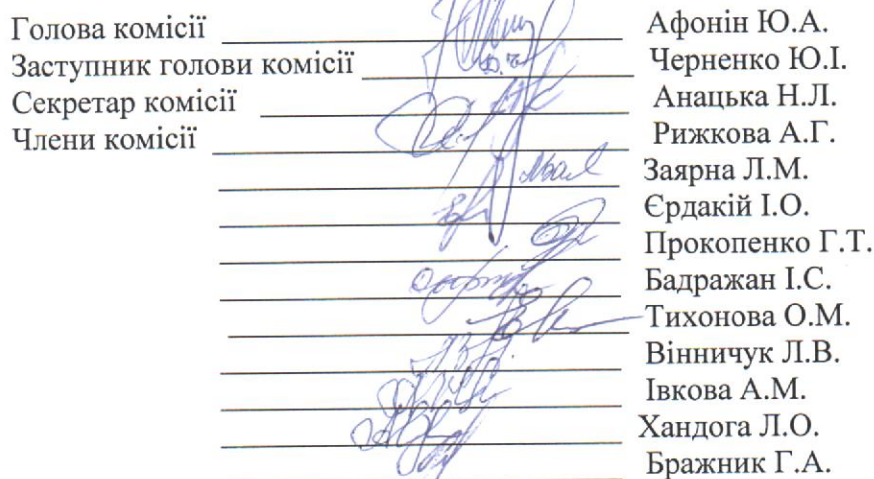 Голова комісії Афонін Ю.А.
Заступник голови комісії Черненко Ю.І.
Секретар комісії Анацька Н.Л.
Члени комісії Рижкова А.Г.
Заярна Л.М.
Єрдакій І.О.
Прокопенко Г.Т.
Бадражан І.С.
Тихонова О.М.
Вінничук Л.В.
Івкова А.М.
Хандога Л.О.
Бражник Г.А.